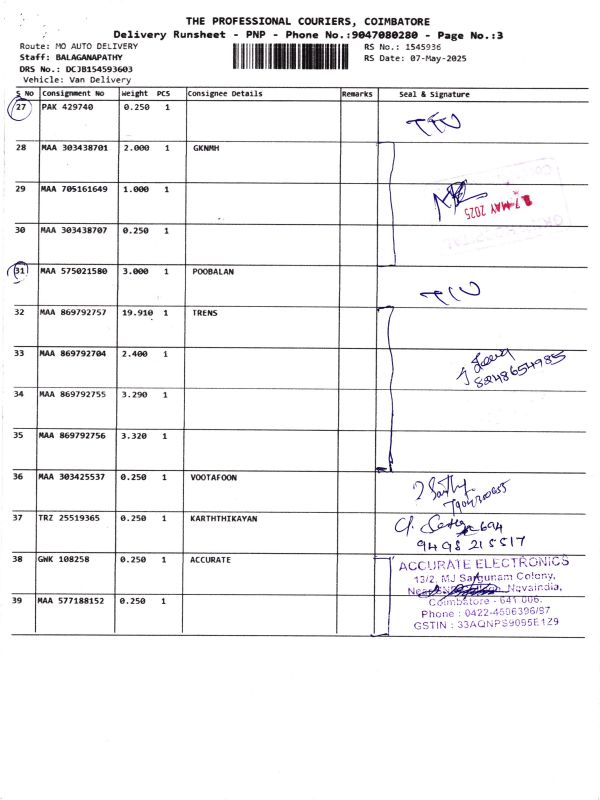 THE PROFESSIONAL COURIERS, COIMBATORE
Delivery Runsheet - PNP - Phone No.:9047080280 - Page No.:3
Route: MO AUTO DELIVERY RS No.: 1545936
Staff: BALAGANAPATHY RS Date: 07-May-2025
DRS No.: DCJB154593603
Vehicle: Van Delivery
S No Consignment No Weight PCS Consignee Details Remarks Seal & Signature
27 PAK 429740 0.250 1
28 MAA 303438701 2.000 1 GKNMH
29 MAA 705161649 1.000 1
7 MAY 2025
30 MAA 303438707 0.250 1
31 MAA 575021580 3.000 1 POOBALAN
32 MAA 869792757 19.910 1 TRENS
33 MAA 869792704 2.400 1
8248654985
34 MAA 869792755 3.290 1
35 MAA 869792756 3.320 1
36 MAA 303425537 0.250 1 VOOTAFOON
37 TRZ 25519365 0.250 1 KARTHTHIKAYAN
694
9498 215517
38 GWK 108258 0.250 1 ACCURATE ACCURATE ELECTRONICS
13/2, MJ Sargunam Colony,
Navaindia,
39 MAA 577188152 0.250 1 Coimbatore - 641 006.
Phone : 0422-4506396/97
GSTIN : 33AQNPS9095E1Z9